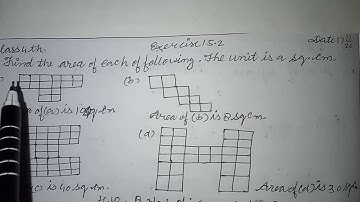 lass 4th Exercise 15.2 Date 17
Find the area of each of following. The unit is a sq. cm.
(b)
of (a) is sq cm
Area of (b) is 8 sq cm.
(d)
is 40 sq. cm
Area of (d) is 30